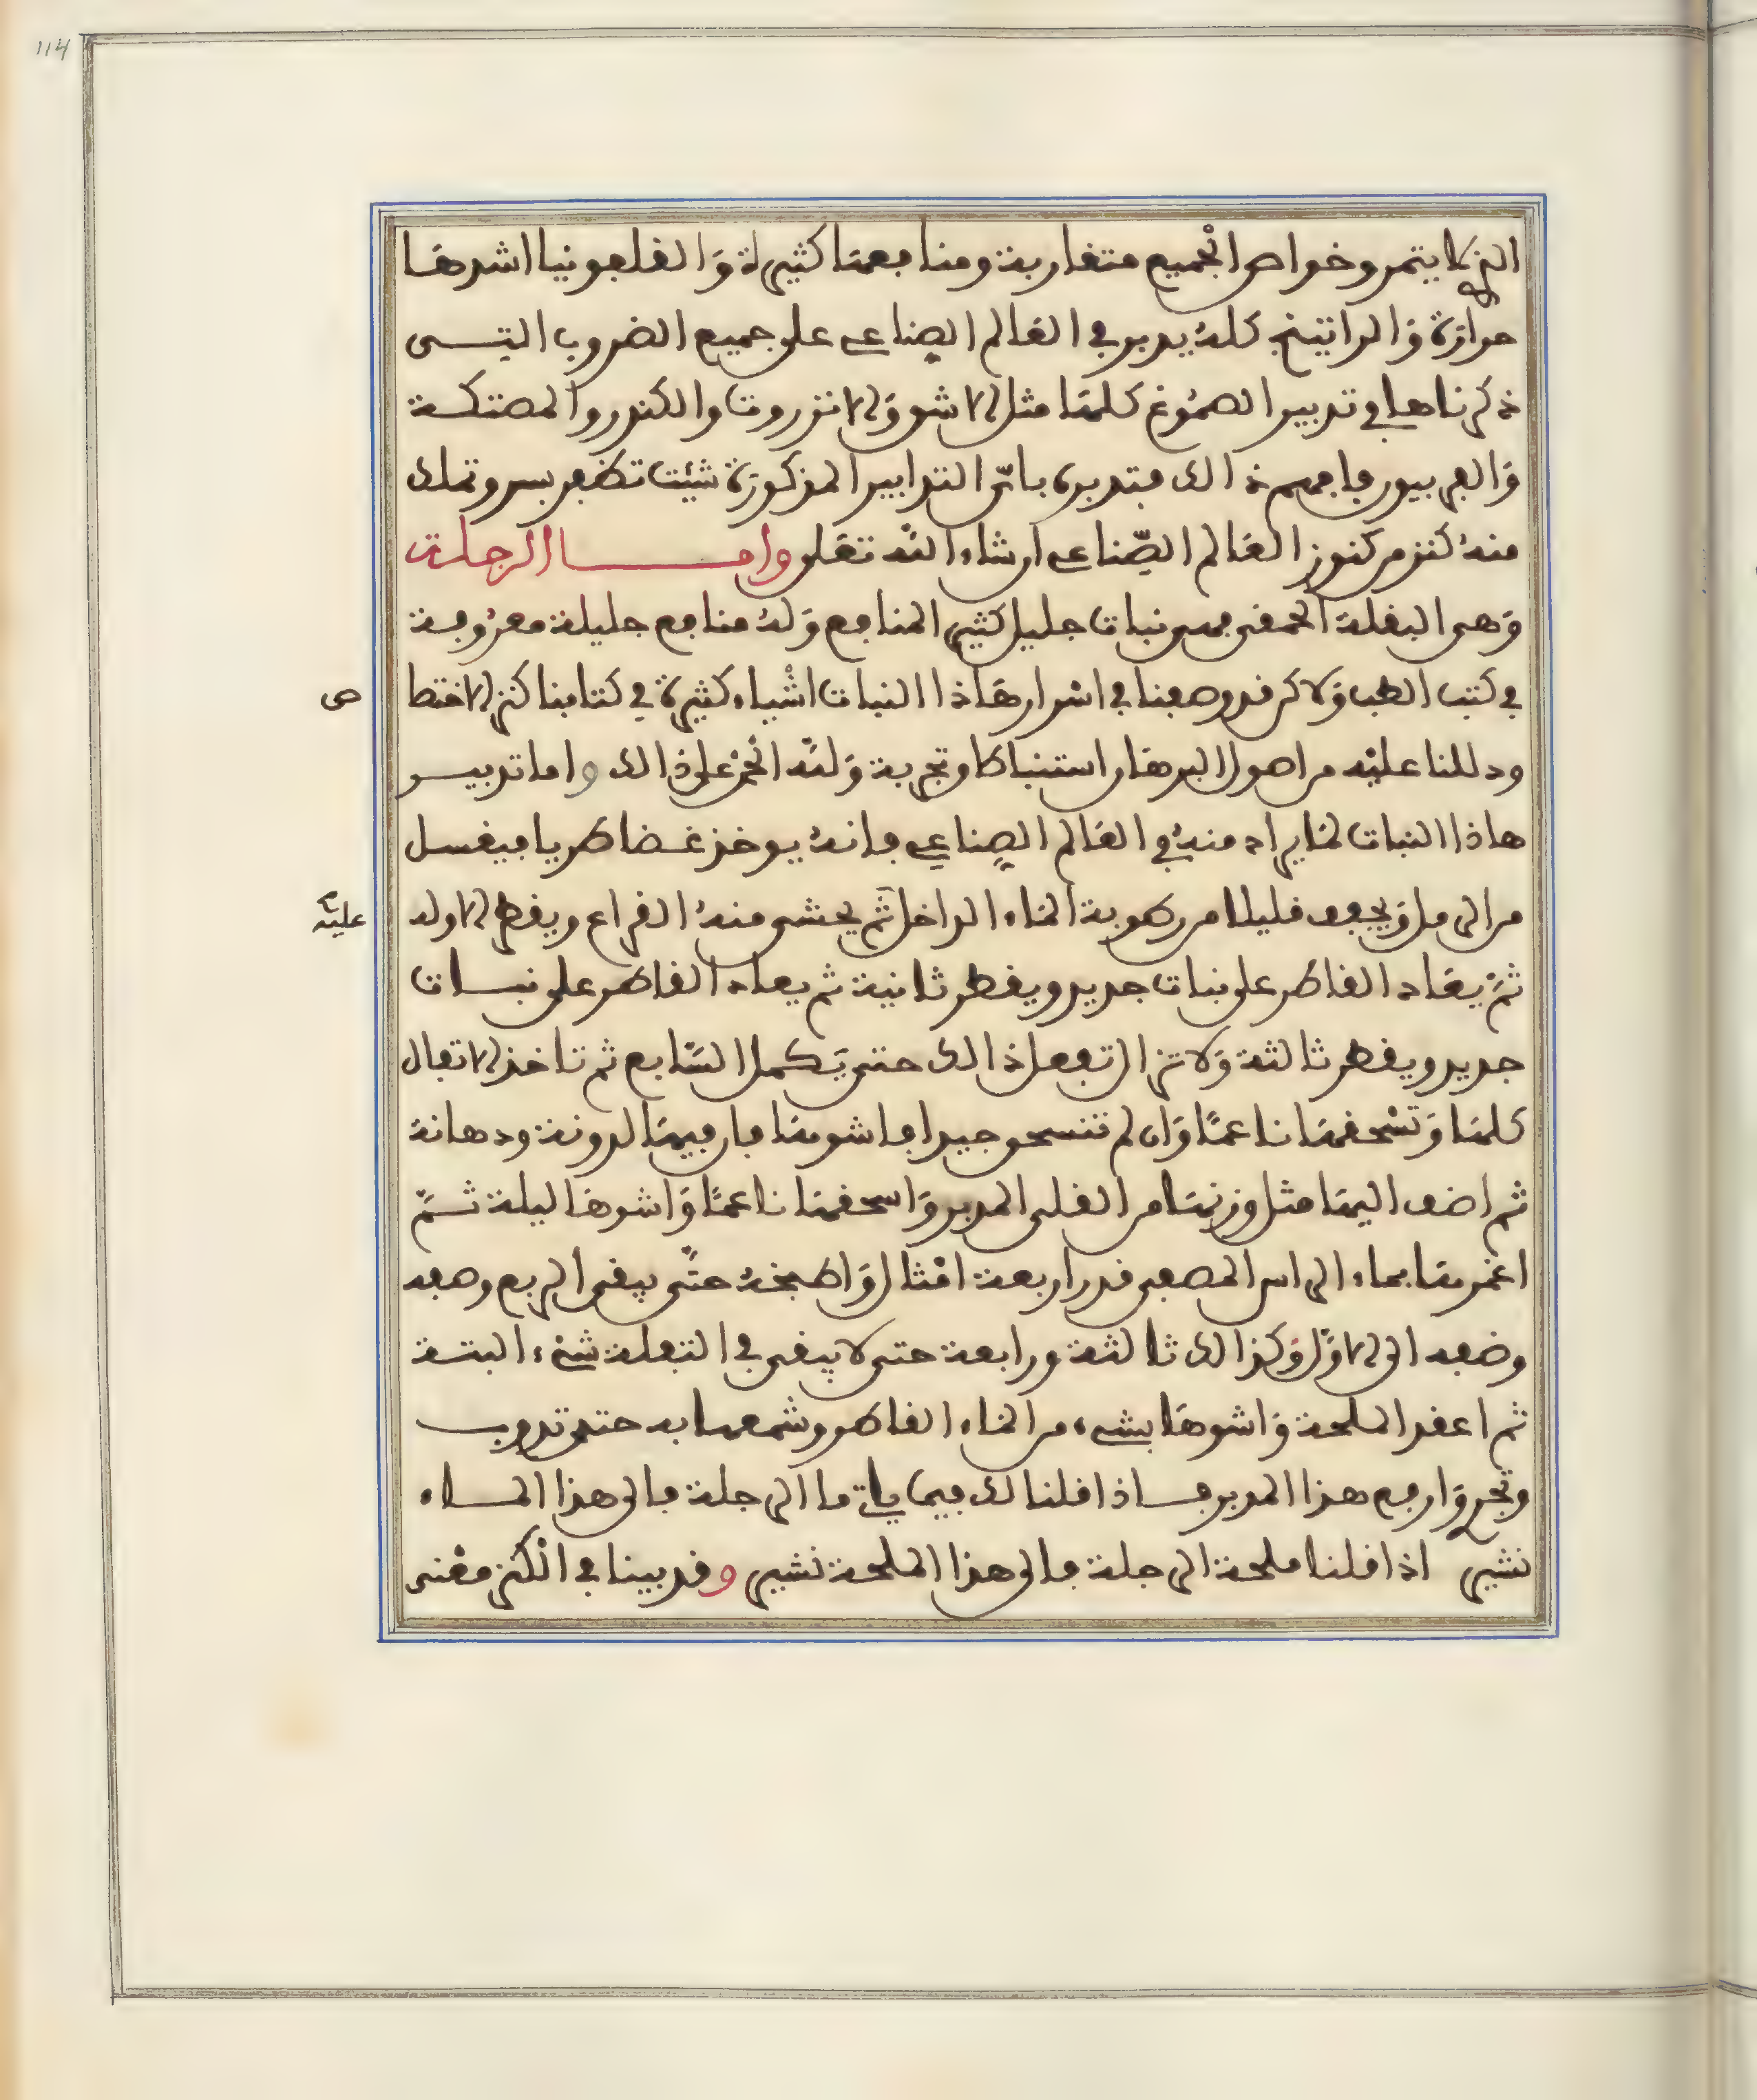 114
الذي لا يتمن وخواص الجميع متقاربة ومنافعها كثيرة وَالقلفونيا اشدها
حرارة وَالراتينج كلهُ يدبر في العَالم الصناعي على جميع الضروب التـــي
ذكرناها في تدبير الصمُوغ كلهَا مثل الاشق وَالانزروت والكندر والمصتكـة
وَالفربيون فافهم ذالك فتدبره بايّ التدابير المذكورَة شئِت تظفر بسر وتملك
منهُ كنز من كنوز العَالم الصِّناعي ان شاء اللّه تعَلى وامـــــــا الرجلـة
وَهى البقلة الحمقى فهى نبات جليل كثير المنافع وَلهُ منافع جليلة معرُوفـة
في كتب الطب وَلاكن قد وضعنا في اسْرار هَاذا النبات اشْياء كثيرة في كتابنا كنز الاختصا
ص
ودللنا عليْه من اصول البرهَان استنباطا وتجربة وَللّه الحمْد على ذالك واما تدبيـــر
هاذا النبات لمَا يراد منهُ في العَالم الصِناعي فانهُ يوخذ غـضا طريا فيغسل
من الرمل وَيجفف قليلا من رطوبة المَاء الداخل ثم يحشى منهُ القراع ويقطر الاوله
عليْه
ثمّ يعَاد القاطر على نبات جديد ويقطر ثانية ثم يعاد القاطر على نبـــات
جديد ويقطر ثالثة وَلا تزال تفعل ذالك حتى يَكـمل السَّابع ثم تاخذ الاتفال
كلهَا وَتسْحقهَا ناعمًا وَان لم تنسحق جيدا فاشوهَا فان فيهَا لدونة ودهانة
ثم اضف اليهَا مثل وزنهَا من القلى المدبر وَاسحقهَا ناعمًا وَاشوهَا ليلة ثــمّ
اغمرهَا بماء الراس المصفى قدر اربعة امْثال وَاطبخهُ حتَّى يبقى الربع وصفه
وضفه الى الاوّل وَكذالك ثالثة ورابعة حتى لا يبقى في التفلة شىْء البتـة
ثم اعقد الملحة وَاشوهَا بشىء من المَاء القاطر وشمعها به حتى تدوب
وتجري وَارفع هذا المدبر فـاذا قلنا لك فيما ياتي ما الرجلة فالى هذا المـــاء
نشير اذا قلنا ملحة الرجلة فالى هذا الملحة نشير وقد بينا في الْكنز معْنى